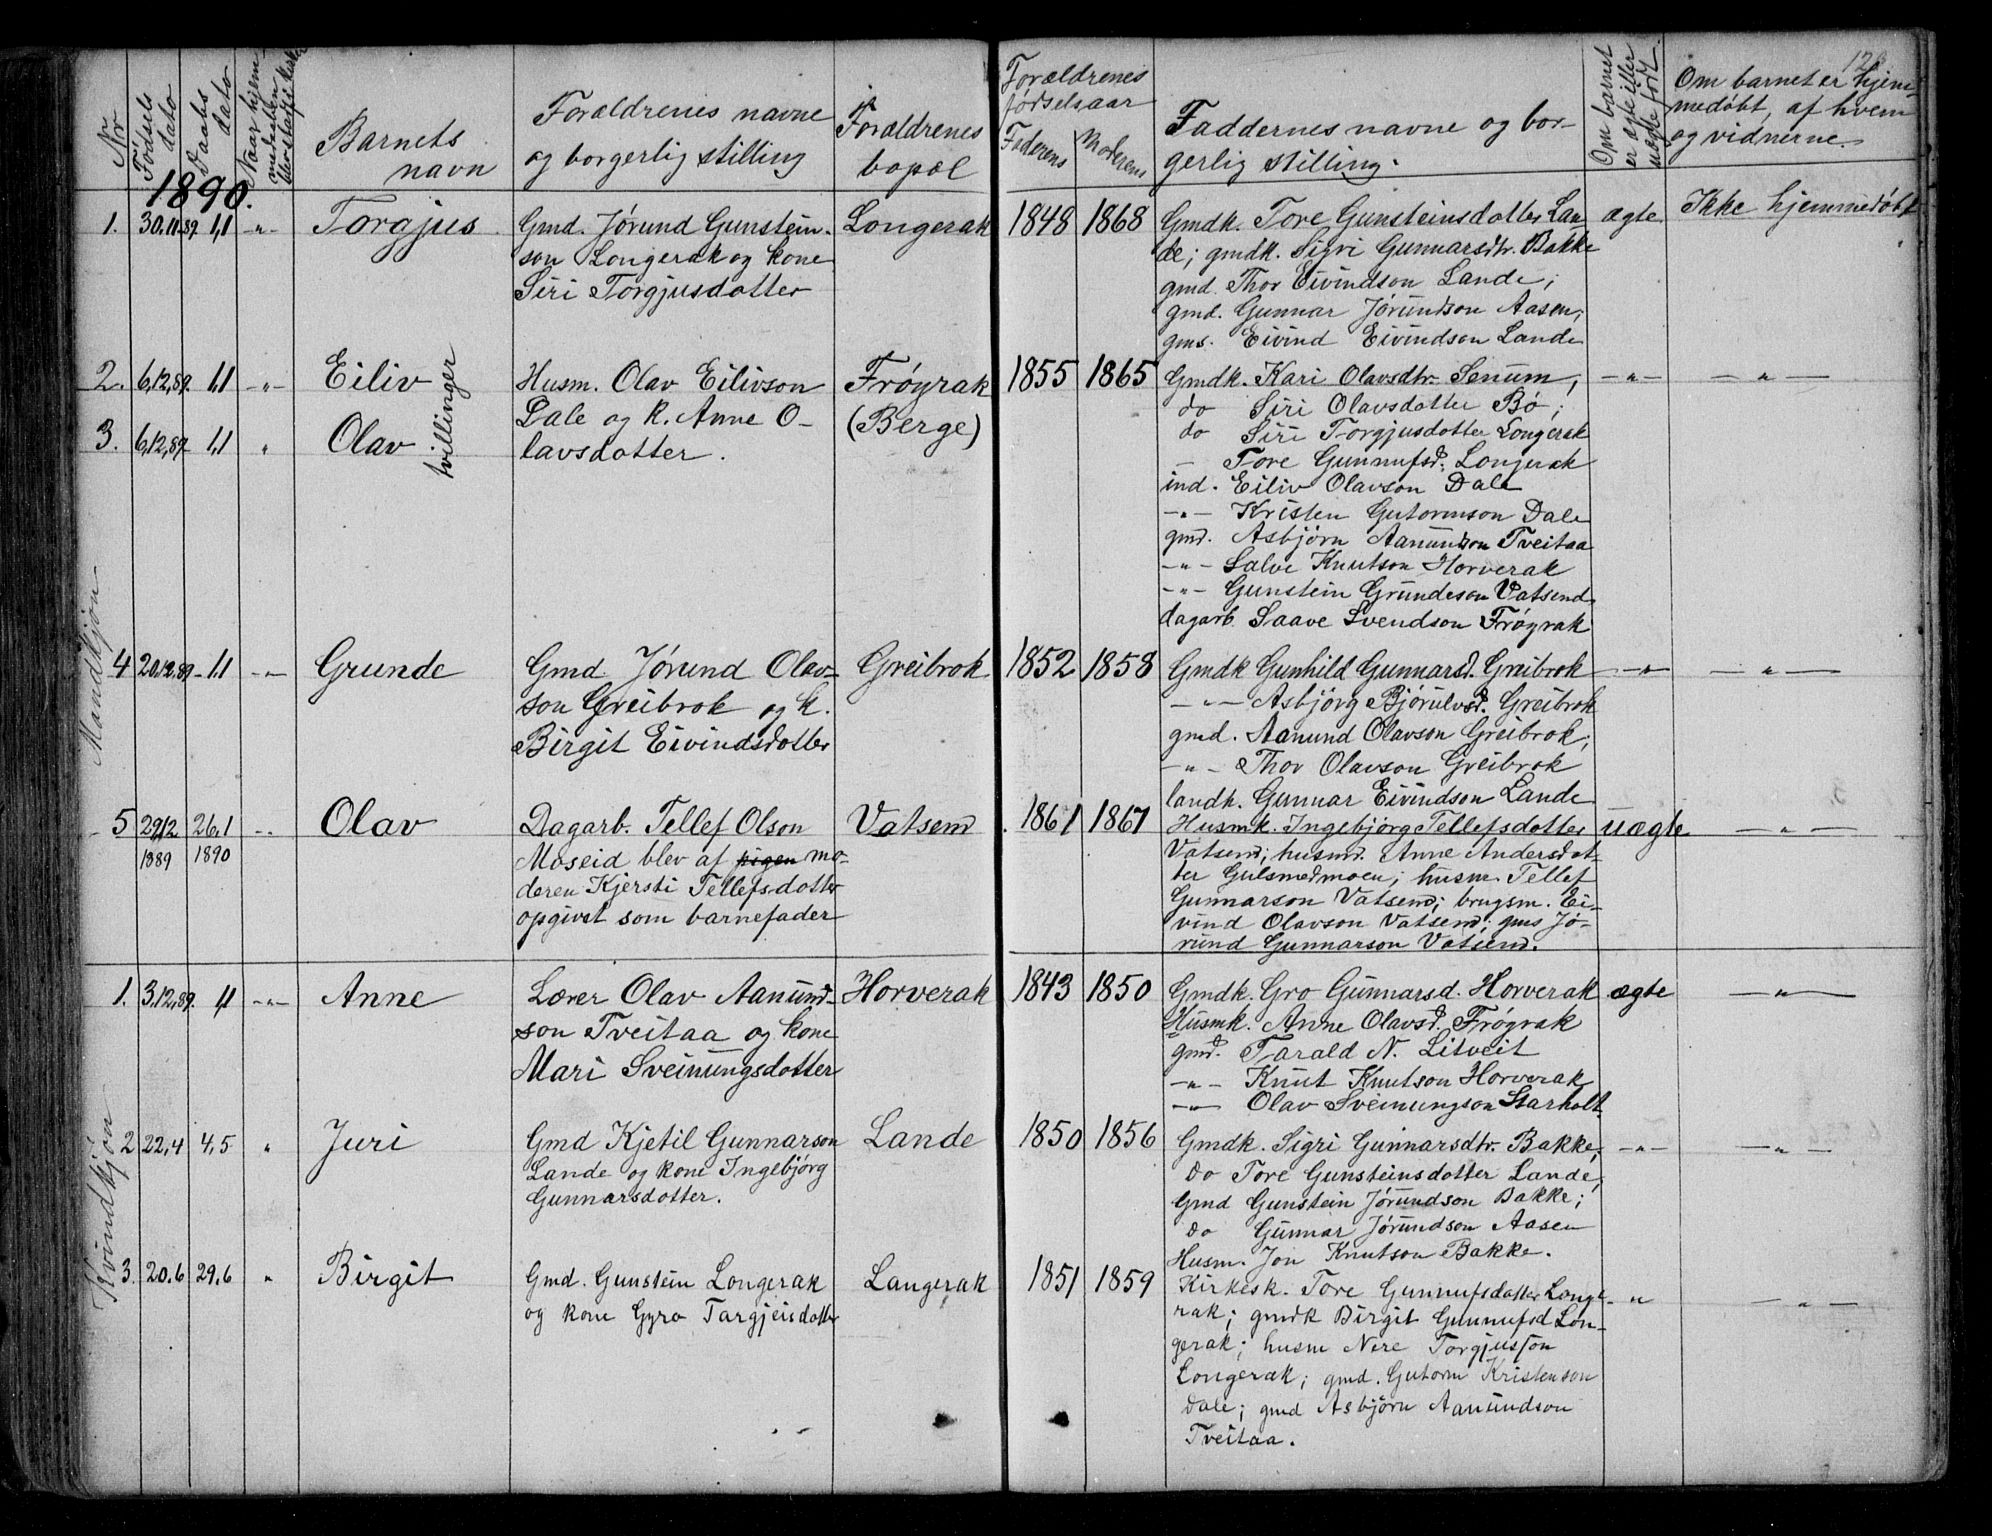 Nr
Födsels dato
Daabs dato
Naar hjemmedaaben blev stadf. i kirken
Barnets navn
Forældrenes navne og borgerlig stilling
Forældrenes bopæl
Forældrenes fødselsaar
Faderens
Moderens
Faddernes navne og borgerlig stilling.
Om barnet er ægte eller uægte født.
Om barnet er hjemmedøbt, af hvem og vidnerne.
1890.
Mandkjøn
1. 30.11.89. 1,1 -"- Torgjus
Gmd. Jørund Gunstein-
son Longerak og kone
Siri Torgjusdotter
Longerak
1848 1868
Gmdk. Tore Gunsteinsdotter Lan
de; gmdk. Sigri Gunnarsdtr. Bakke
gmd. Thor Eivindson Lande;
gmd. Gunnar Jørundson Aasen;
gms. Eivind Eivindson Lande
ægte
Ikke hjemmedøbt
2. 6,12,89. 1,1 -"- Eiliv
3. 6,12,89. 1,1 " Olav
tvillinger
Husm. Olav Eilivson
Dale og k. Anne O-
lavsdotter.
Frøyrak
(Berge)
1855 1865
Gmdk. Kari Olavsdtr. Senum,
do Siri Olavsdotter Bø;
do Siri Torgjusdotter Longerak
— Tore Gunnufsd. Longerak
ind. Eiliv Olavson Dale
-"- Kristen Gutormson Dale
gmd. Asbjørn Aanundson Tveitaa
-"- Salve Knutson Horverak
-"- Gunstein Grundeson Vatsend
dagarb. Saave Svendson Frøyrak
-"- -"-
4 20.12.89. 1,1 -"- Grunde
Gmd Jørund Olav-
son Greibrok og k.
Birgit Eivindsdotter
Greibrok
1852 1858
Gmdk Gunhild Gunnarsd. Greibrok
-"- Asbjørg Bjørulvsd. Greibrok
gmd. Aanund Olavson Greibrok;
-"- Thor Olavson Greibrok
landh. Gunnar Eivindson Lande
-"- -"-
5 29.12 1889 26.1 1890 -"- Olav
Dagarb. Tellef Olson
Moseid blev af pigen mo-
deren Kjersti Tellefsdotter
opgivet som barnefader
Vatsend
1861 1867
Husmk. Ingebjørg Tellefsdotter
Vatsend; husmd. Anne Andersdot-
ter Gulsmedmoen; husm. Tellef
Gunnarson Vatsend; brugsm. Ei-
vind Olavson Vatsend; gms Jø-
rund Gunnarson Vatsend.
uægte -"-
Kvindkjøn
1. 3,12,89. 1,1 -"- Anne
Lærer Olav Aanund-
son Tveitaa og kone
Mari Sveinungsdotter
Horverak
1843 1850
Gmdk. Gro Gunnarsd. Horverak
Husmk. Anne Olavsd. Frøyrak
gmd. Tarald N. Litveit
-"- Knut Knutson Horverak
-"- Olav Sveinungson Starholt
ægte -"-
2 22,4 4,5 " Juri
Gmd Kjetil Gunnarson
Lande og kone Ingebjørg
Gunnarsdotter.
Lande
1850 1856
Gmdk. Sigri Gunnarsdtr. Bakke;
do Tore Gunsteinsdotter Lande;
Gmd Gunstein Jørundson Bakke;
do Gunnar Jørundson Aasen
Husm. Jon Knutson Bakke.
-"- -"-
3. 20.6 29.6 " Birgit
Gmd. Gunstein Longerak
og kone Gyro Targjeisdotter
Langerak
1851 1859
Kirkesk. Tore Gunnufsdotter Longe
rak; gmdk Birgit Gunnufsd Lon-
gerak; husm Nere Torgjusson
Longerak; gmd. Gutorm Kristenson
Dale; gmd Asbjørn Aanundson
Tveitaa.
-"- -"-